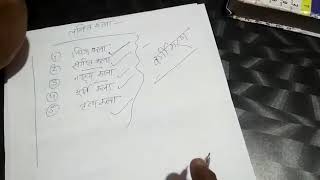 ललित कला
① चित्र कला
② संगीत कला
③ नाट्य कला
④ मूर्ति कला
⑤ काव्य कला